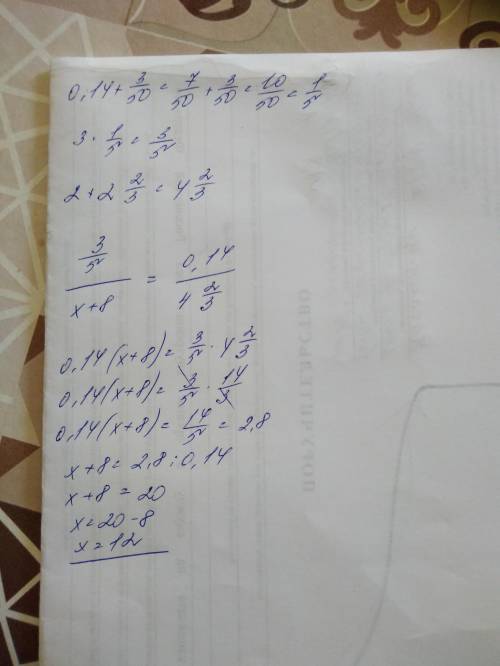 0,14 + 3/50 = 7/50 + 3/50 = 10/50 = 1/5
3 · 1/5 = 3/5
2 + 2 2/3 = 4 2/3
3/5 / x+8 = 0,14 / 4 2/3
0,14(x+8) = 3/5 · 4 2/3
0,14(x+8) = 3/5 · 14/3
0,14(x+8) = 14/5 = 2,8
x+8 = 2,8 : 0,14
x+8 = 20
x = 20 - 8
x = 12
ПОРУЧИТЕЛЬСТВО